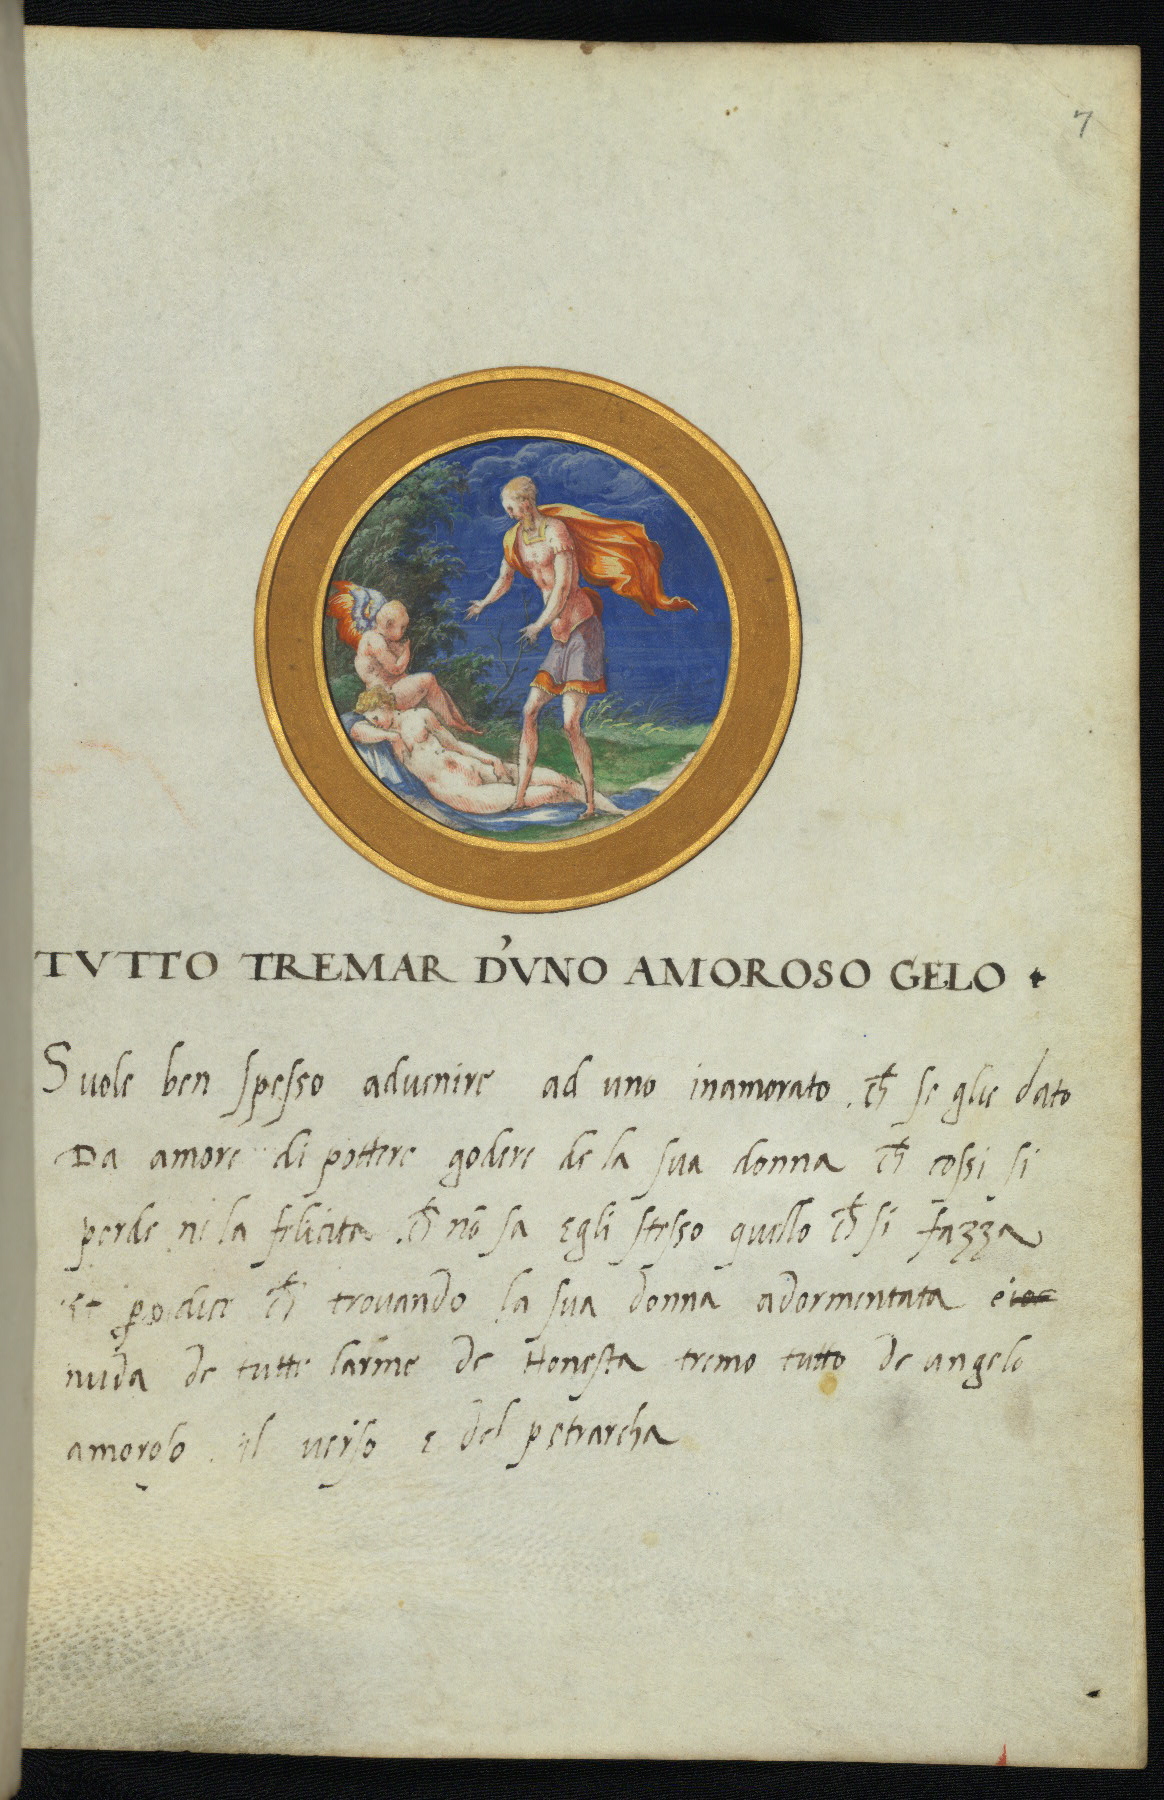 7
TVTTO TREMAR D'VNO AMOROSO GELO
Suole ben spesso aduenire ad uno inamorato . ch̄ se glie dato
Da amore di pottere godere de la sua donna ch̄ cossi si
perde ne la felicita . ch̄ nō sa egli stesso quello ch̄ si fazza
et dice ch̄ trouando la sua donna adormentata e
nuda de tutte larme de Honesta tremo tutto de un gelo
amoroso . il verso e del petrarcha